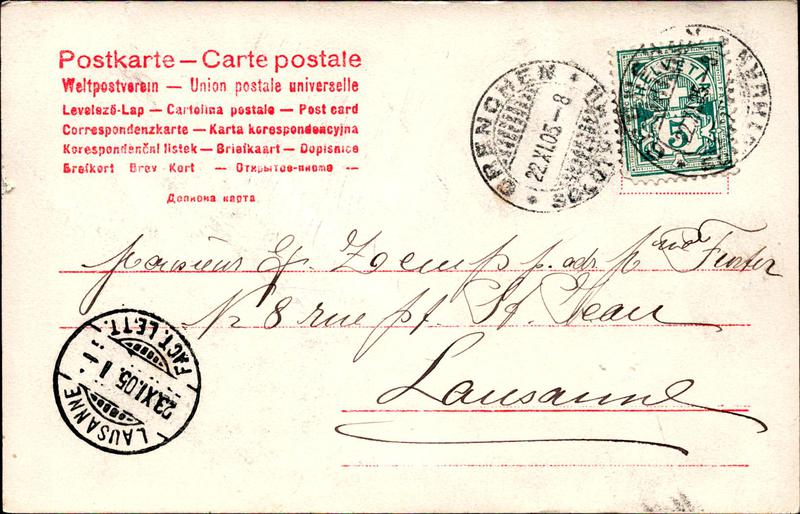 Postkarte — Carte postale
Weltpostverein — Union postale universelle
Levelező-Lap — Cartolina postale — Post card
Correspondenzkarte — Karta korespondencyjna
Korespondenční lístek — Briefkaart — Dopisnice
Brefkort Brev Kort — Открытое-писмо —
Дописна карта
GRENCHEN
22.XI.05.–8
HELVETIA
5
Monsieur
N° 8 rue pt. St. Jean
Lausanne
LAUSANNE
23.XI.05.
FACT. LETT.